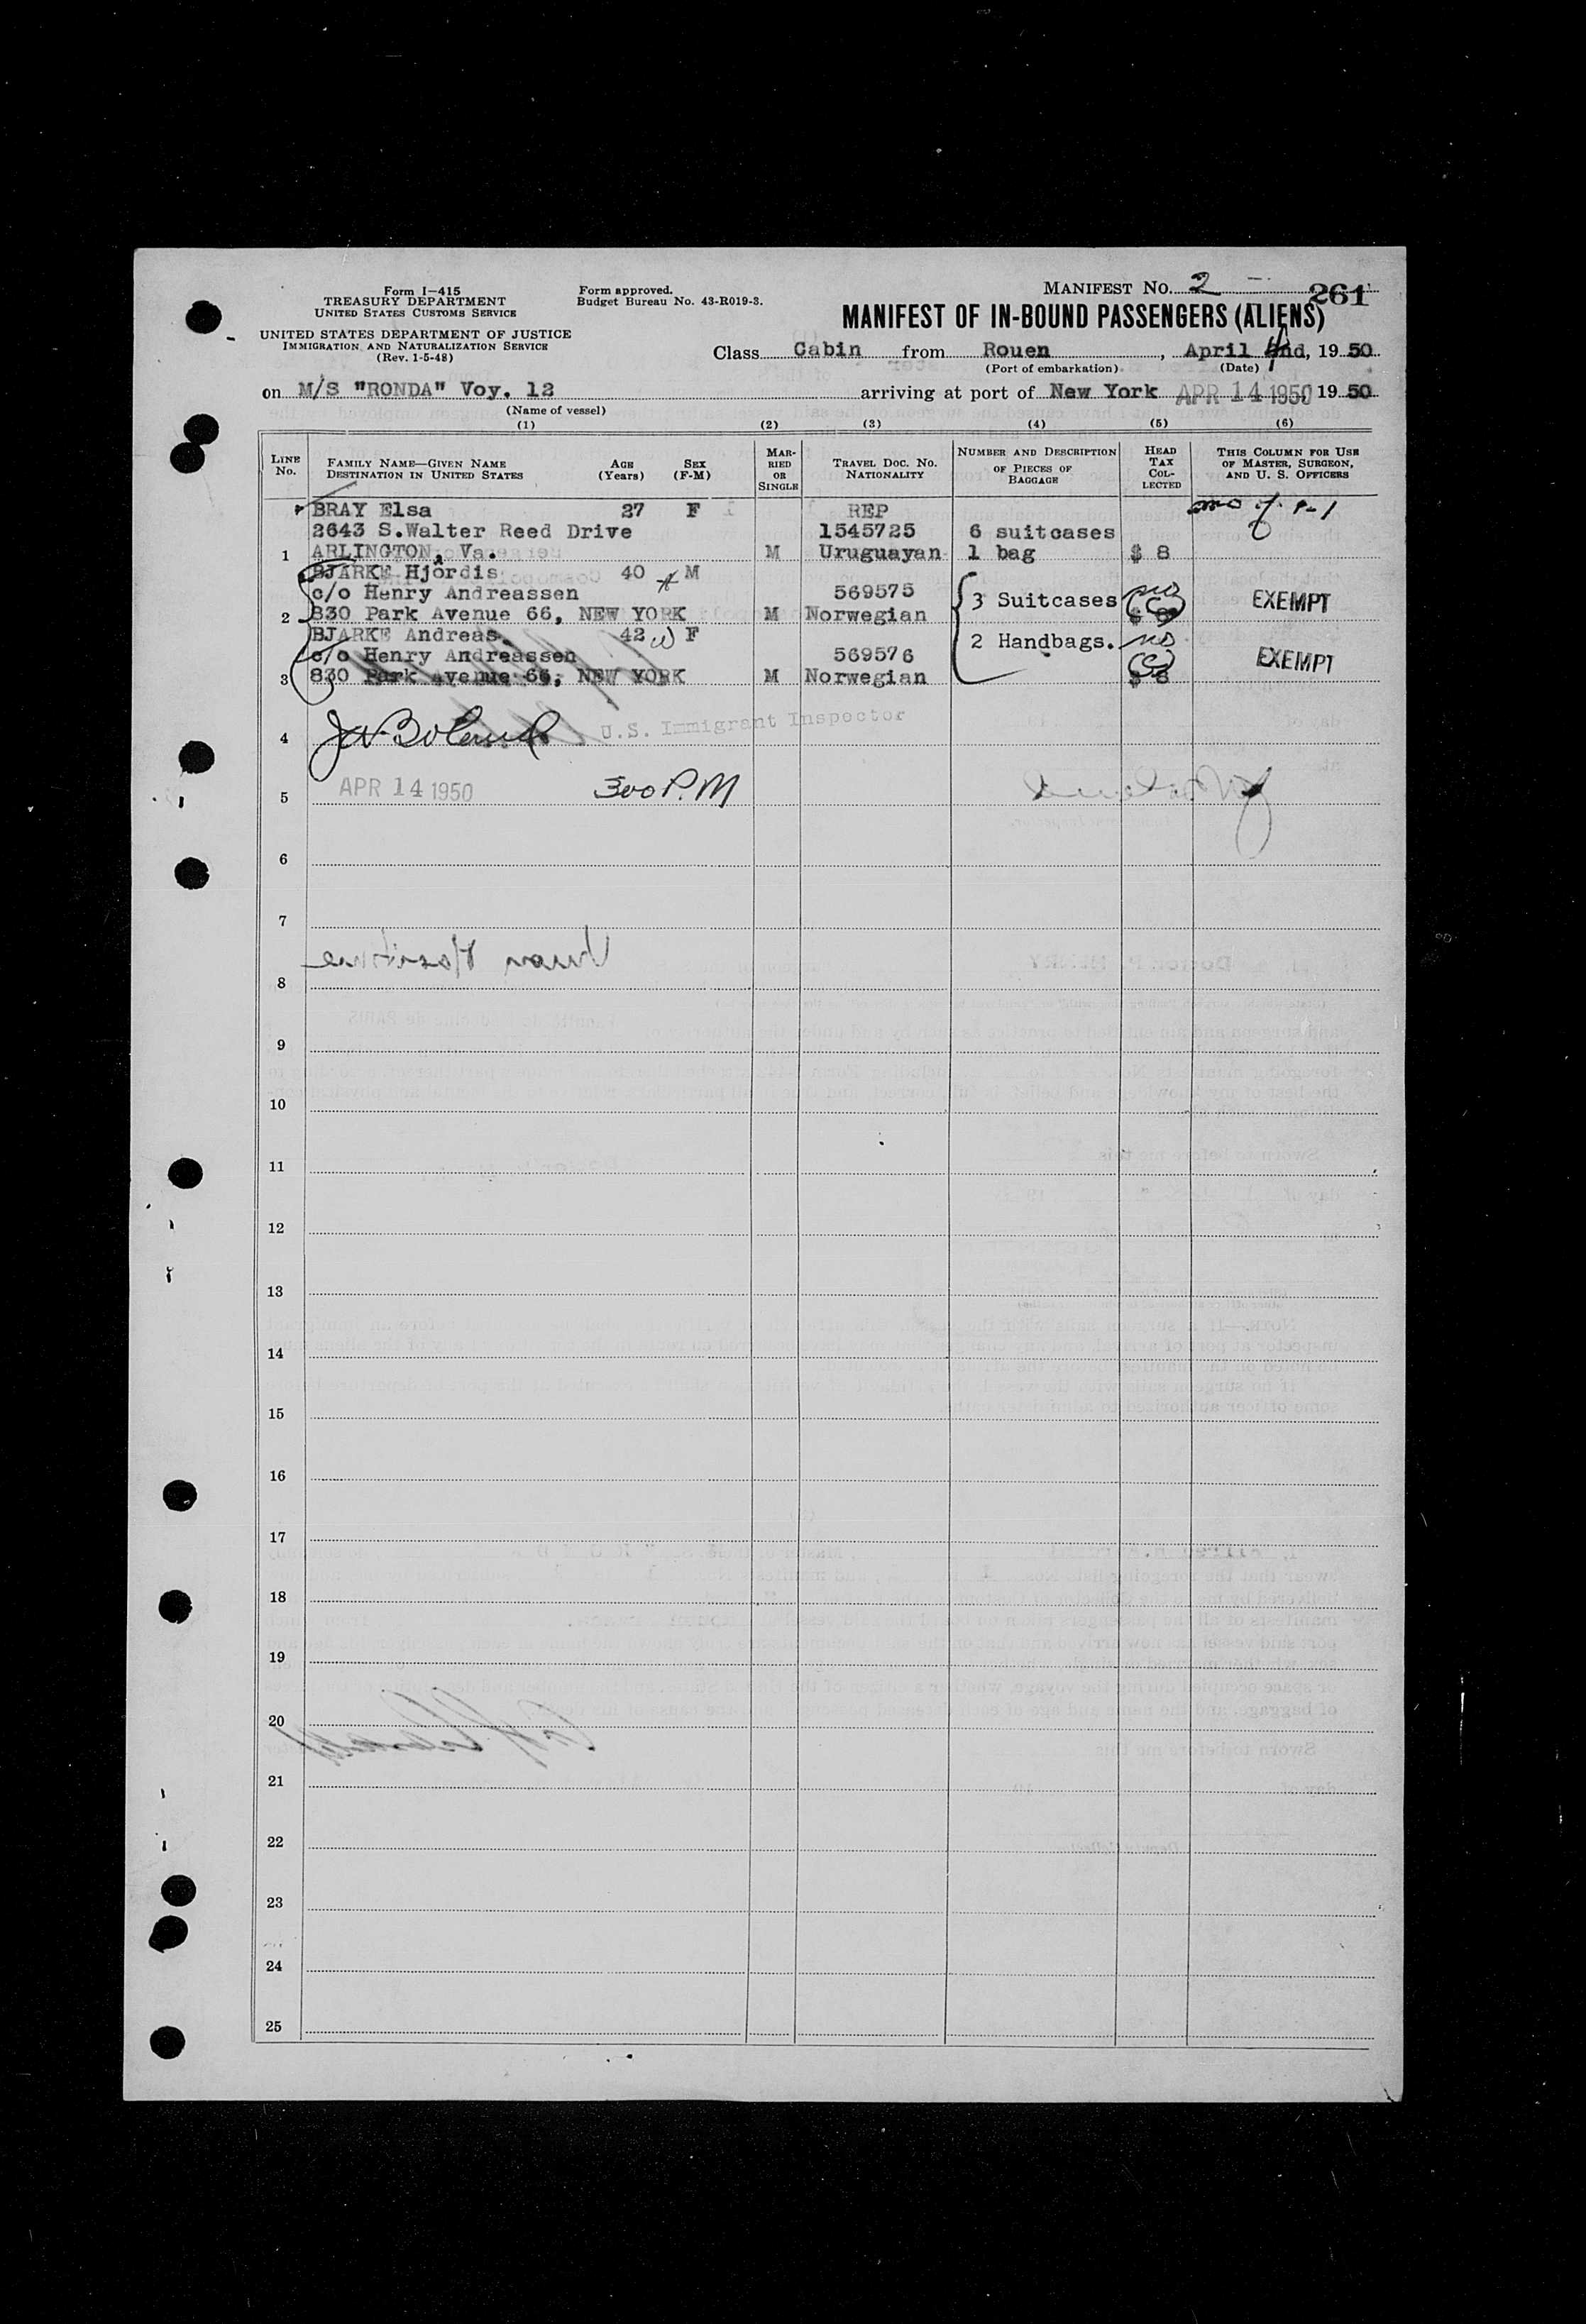 Form I-415
TREASURY DEPARTMENT
UNITED STATES CUSTOMS SERVICE
UNITED STATES DEPARTMENT OF JUSTICE
IMMIGRATION AND NATURALIZATION SERVICE
(Rev. 1-5-48)
Form approved.
Budget Bureau No. 43-R019-3.
MANIFEST No. 2
261
MANIFEST OF IN-BOUND PASSENGERS (ALIENS)
Class Cabin from Rouen, April 4nd, 1950
(Port of embarkation) (Date)
on M/S "RONDA" Voy. 12 arriving at port of New York APR 14 1950 1950
(Name of vessel)
(1) (2) (3) (4) (5) (6)
LINE No. FAMILY NAME—GIVEN NAME DESTINATION IN UNITED STATES AGE (Years) SEX (F-M) MARRIED OR SINGLE TRAVEL DOC. NO. NATIONALITY NUMBER AND DESCRIPTION OF PIECES OF BAGGAGE HEAD TAX COLLECTED THIS COLUMN FOR USE OF MASTER, SURGEON, AND U. S. OFFICERS
BRAY Elsa 27 F REP
2643 S.Walter Reed Drive 1545725 6 suitcases
1 ARLINGTON, Va. M Uruguayan 1 bag $ 8
BJARKE Hjördis 40 M
c/o Henry Andreassen 569575 3 Suitcases EXEMPT
2 830 Park Avenue 66, NEW YORK M Norwegian $ 8
BJARKE Andreas. 42 F 2 Handbags. no
c/o Henry Andreassen 569576 EXEMPT
3 830 Park Avenue 66, NEW YORK M Norwegian $ 8
4 U.S. Immigrant Inspector
5 APR 14 1950 300 P.M
6
7
8
9
10
11
12
13
14
15
16
17
18
19
20
21
22
23
24
25